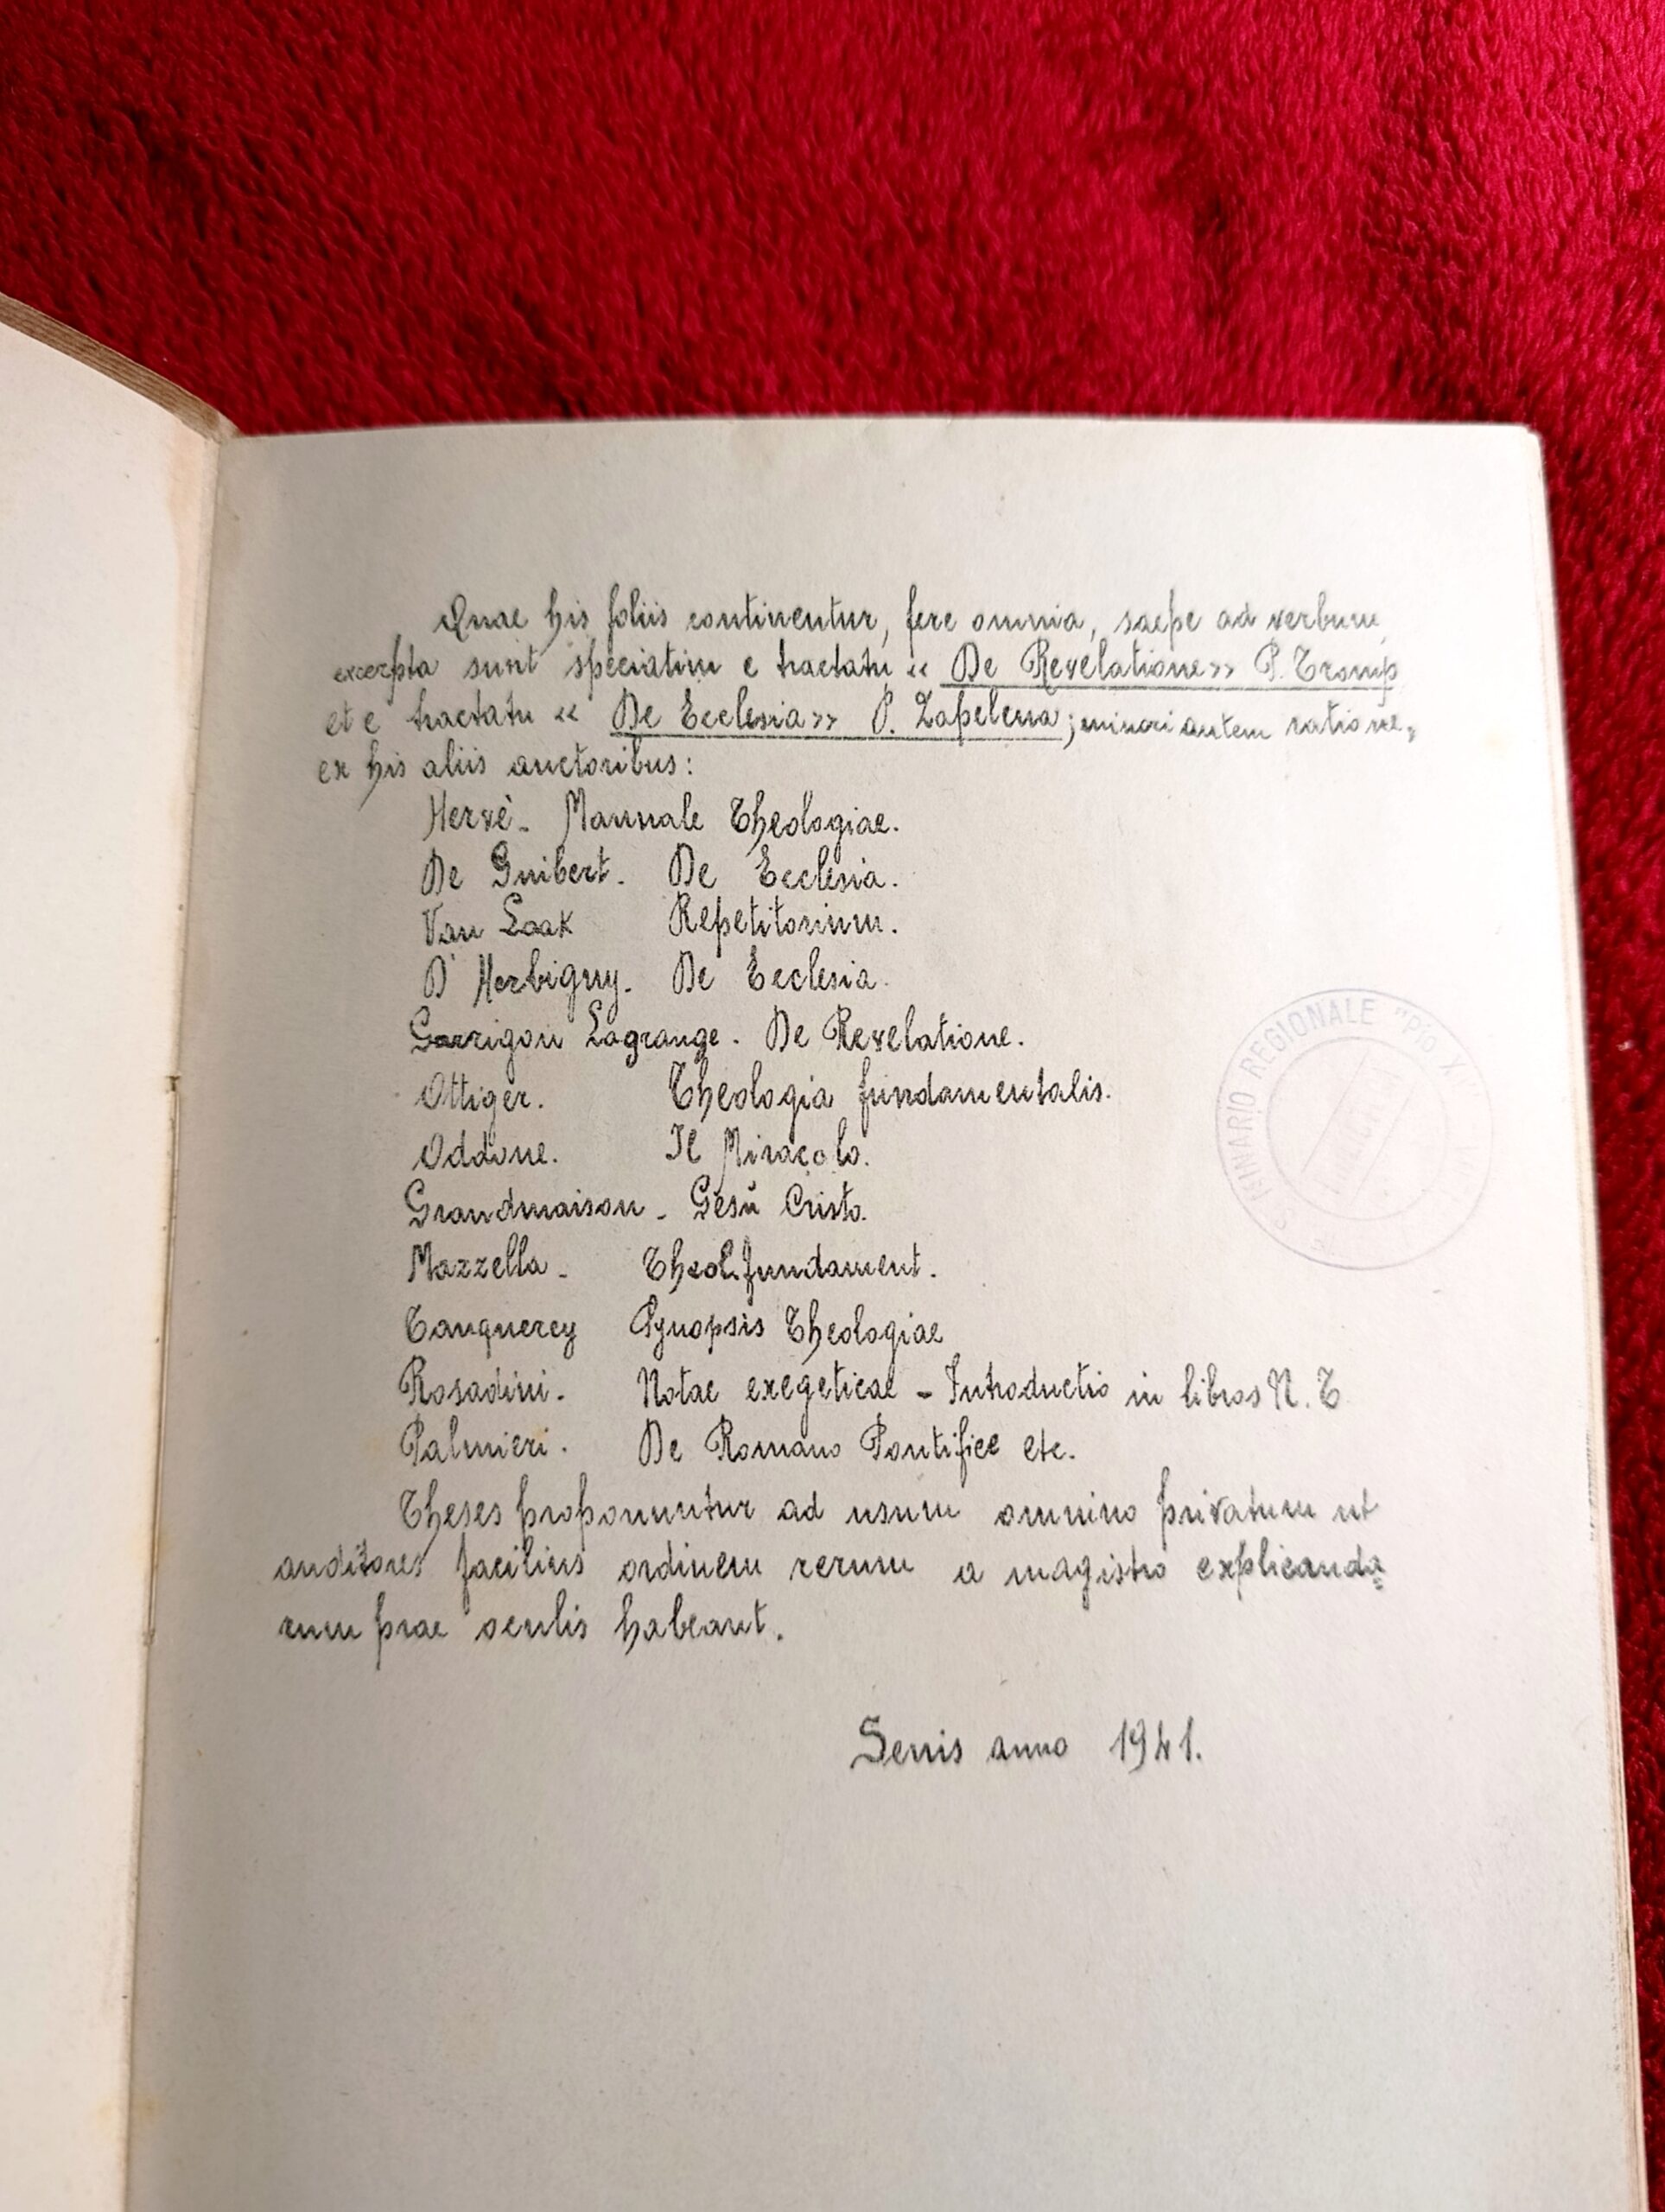 Quae his foliis continentur, fere omnia, saepe ad verbum,
excerpta sunt speciatim e tractatu « De Revelatione» P. Tromp
et e tractatu « De Ecclesia» P. Zapelena; minori autem ratione,
ex his aliis auctoribus:
Hervè - Manuale Theologiae.
De Guibert. De Ecclesia.
Van Laak Repetitorium.
D'Herbigny. De Ecclesia.
Garrigou Lagrange. De Revelatione.
Ottiger. Theologia fundamentalis.
Oddone. Il Miracolo.
Grandmaison - Gesù Cristo.
Mazzella - Theol. fundament.
Tanquerey Synopsis Theologiae
Rosadini. Notae exegeticae - Introductio in libros N. T
Palmieri. De Romano Pontifice etc.
Theses proponuntur ad usum omnino privatum ut
auditores facilius ordinem rerum a magistro explicanda=
rum prae oculis habeant.
Senis anno 1941.
INARIO REGIONALE "PIO X